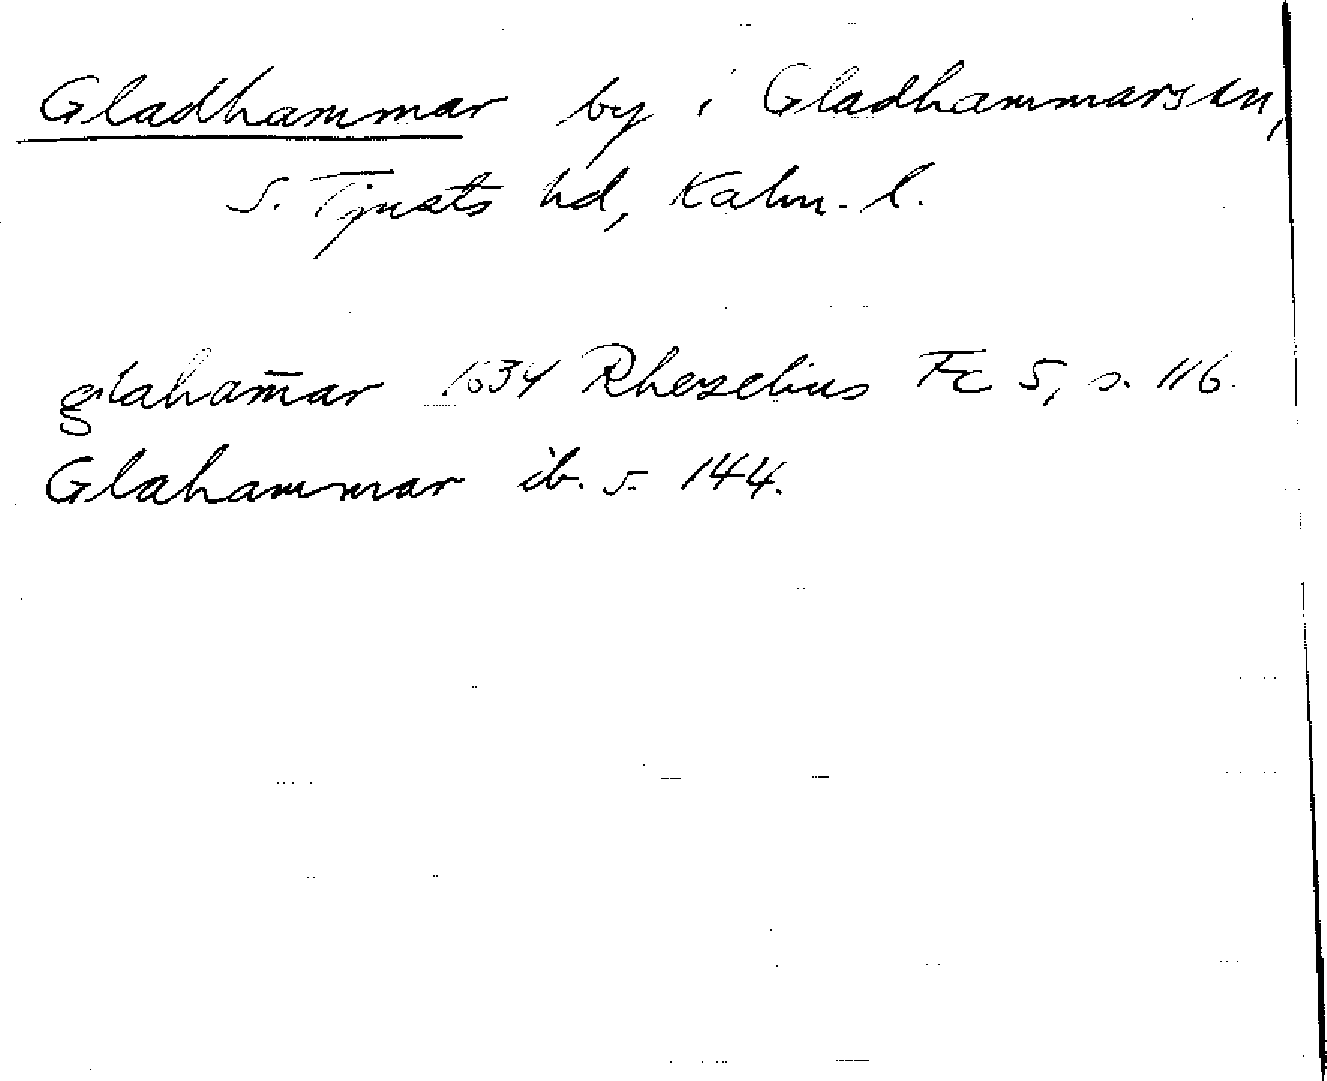 Gladhammar by i Gladhammars sn,
S. Tjusts hd, Kalm. l.
glaham̄ar 1634 Rhezelius Fc 5, s. 116.
Glahammar ib. s. 144.